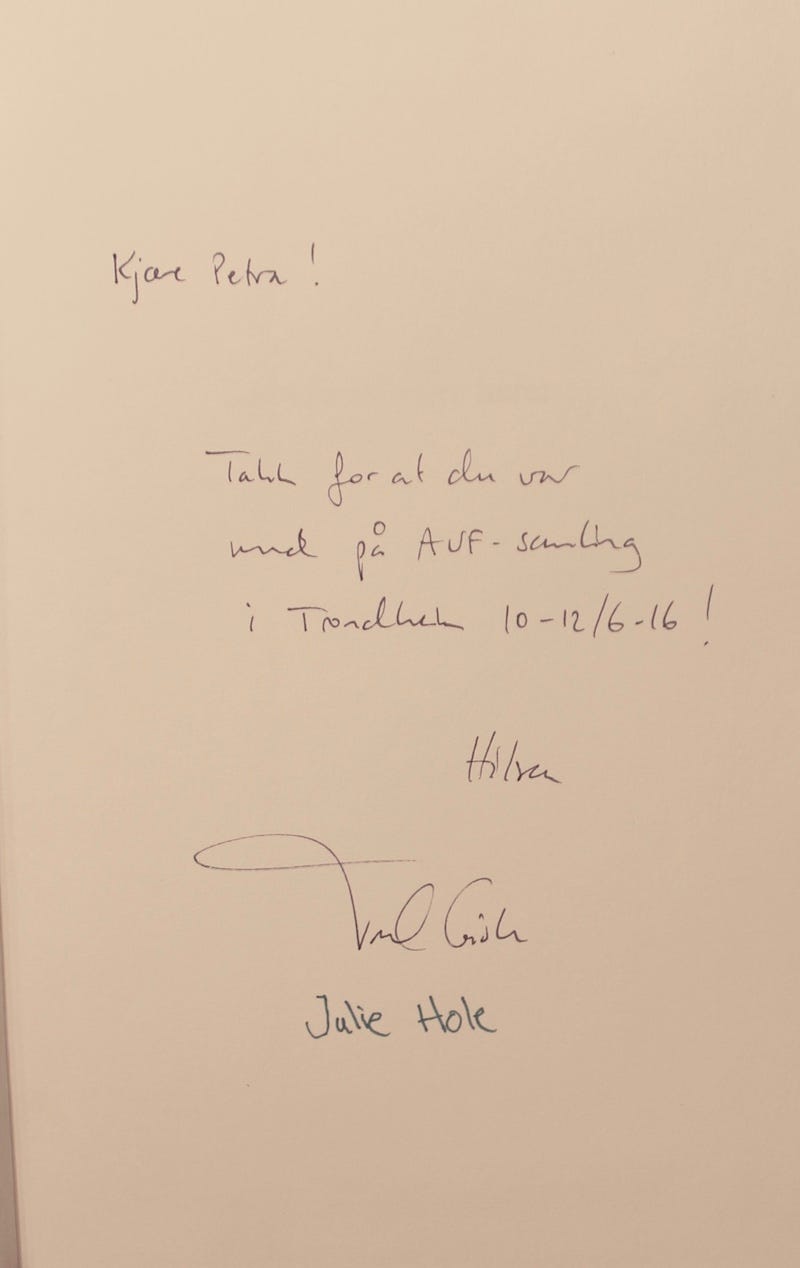 Kjære Petra!
Takk for at du var
med på AUF-samling
i Trondheim 10-12/6-16!
Hilsen
Julie Hole